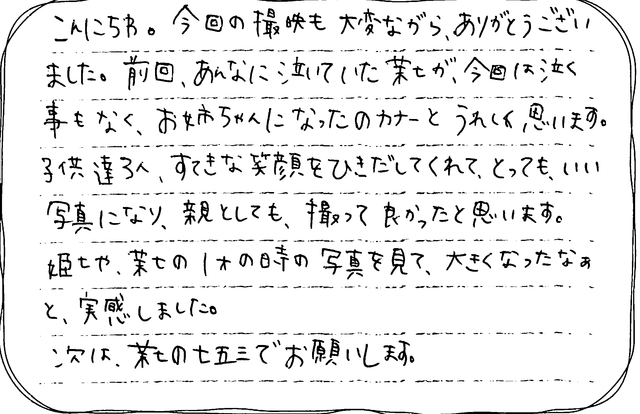 こんにちわ。今回の撮映も大変ながら、ありがとうござい
ました。前回、あんなに泣いていた茉七が、今回は泣く
事もなく、お姉ちゃんになったのカナーとうれしく思います。
子供達3人、すてきな笑顔をひきだしてくれて、とっても、いい
写真になり、親としても、撮って良かったと思います。
姫七や、茉七の1才の時の写真を見て、大きくなったなぁ
と、実感しました。
次は、茉七の七五三でお願いします。